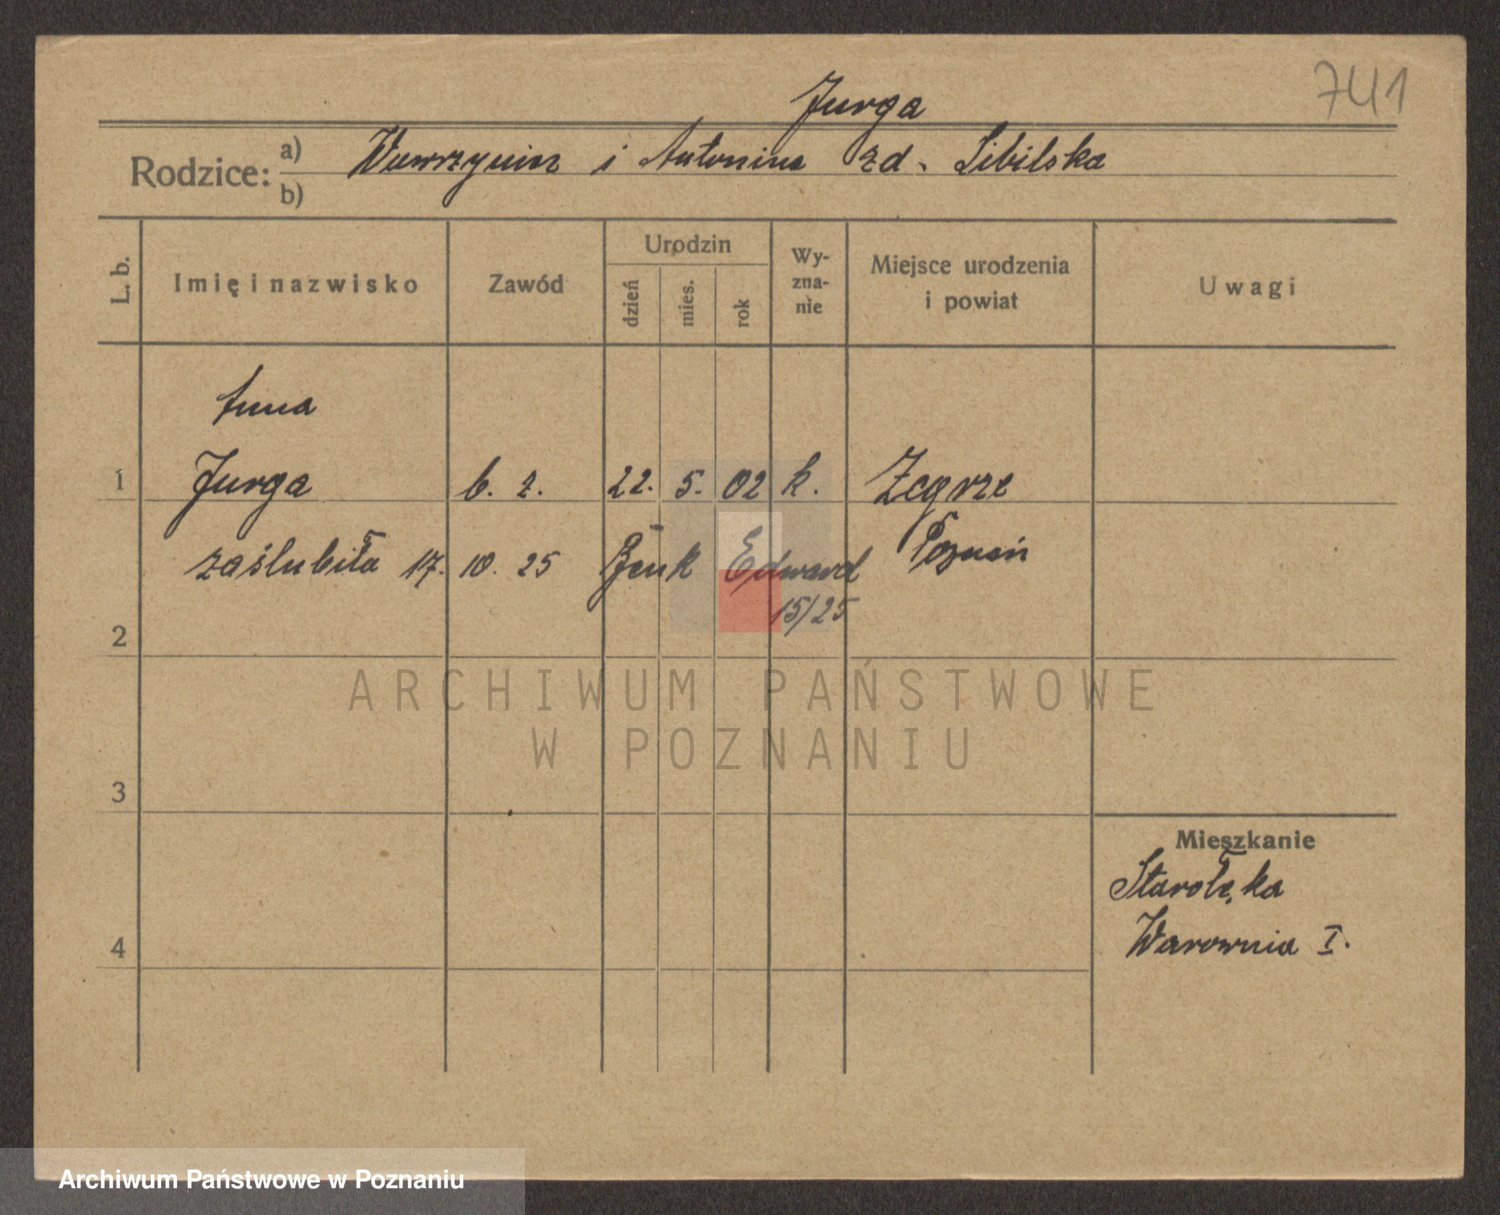 741
Jurga
Rodzice: a) Wawrzynin i Antonina zd. Sibilska
b)
L. b.
Imię i nazwisko
Zawód
Urodzin
dzień
mies.
rok
Wy-
zna-
nie
Miejsce urodzenia
i powiat
Uwagi
Anna
1 Jurga b. z. 22. 5. 02 k. Zegrze
zaślubiła 17. 10. 25 Edward Poznań
15/25
2
ARCHIWUM PAŃSTWOWE
W POZNANIU
3
Mieszkanie
Starołęka
Warownia I.
4
Archiwum Państwowe w Poznaniu